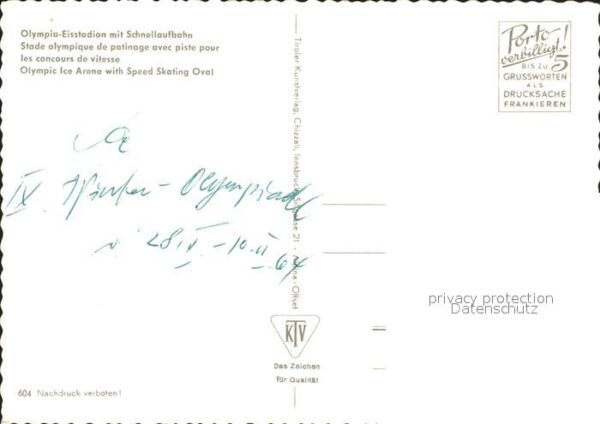 Olympia-Eisstadion mit Schnellaufbahn
Stade olympique de patinage avec piste pour
les concours de vitesse
Olympic Ice Arena with Speed Skating Oval
Porto
verbilligt!
BIS ZU 5
GRUSSWORTEN
ALS
DRUCKSACHE
FRANKIEREN
Tiroler Kunstverlag, Chizzali, Innsbruck,
IX. Winter-Olympiade
64
privacy protection
Datenschutz
KTV
Das Zeichen
für Qualität
604 Nachdruck verboten!